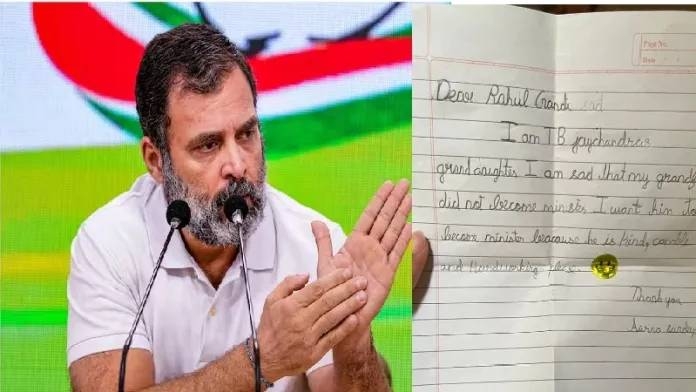 Page No.
Date
Dear Rahul Gandi
I am TB jaychandras
grandaughter I am sad that my grand
did not become minister I want him to
become minister beacause he is kind, capable
and Hardworking
Thank you